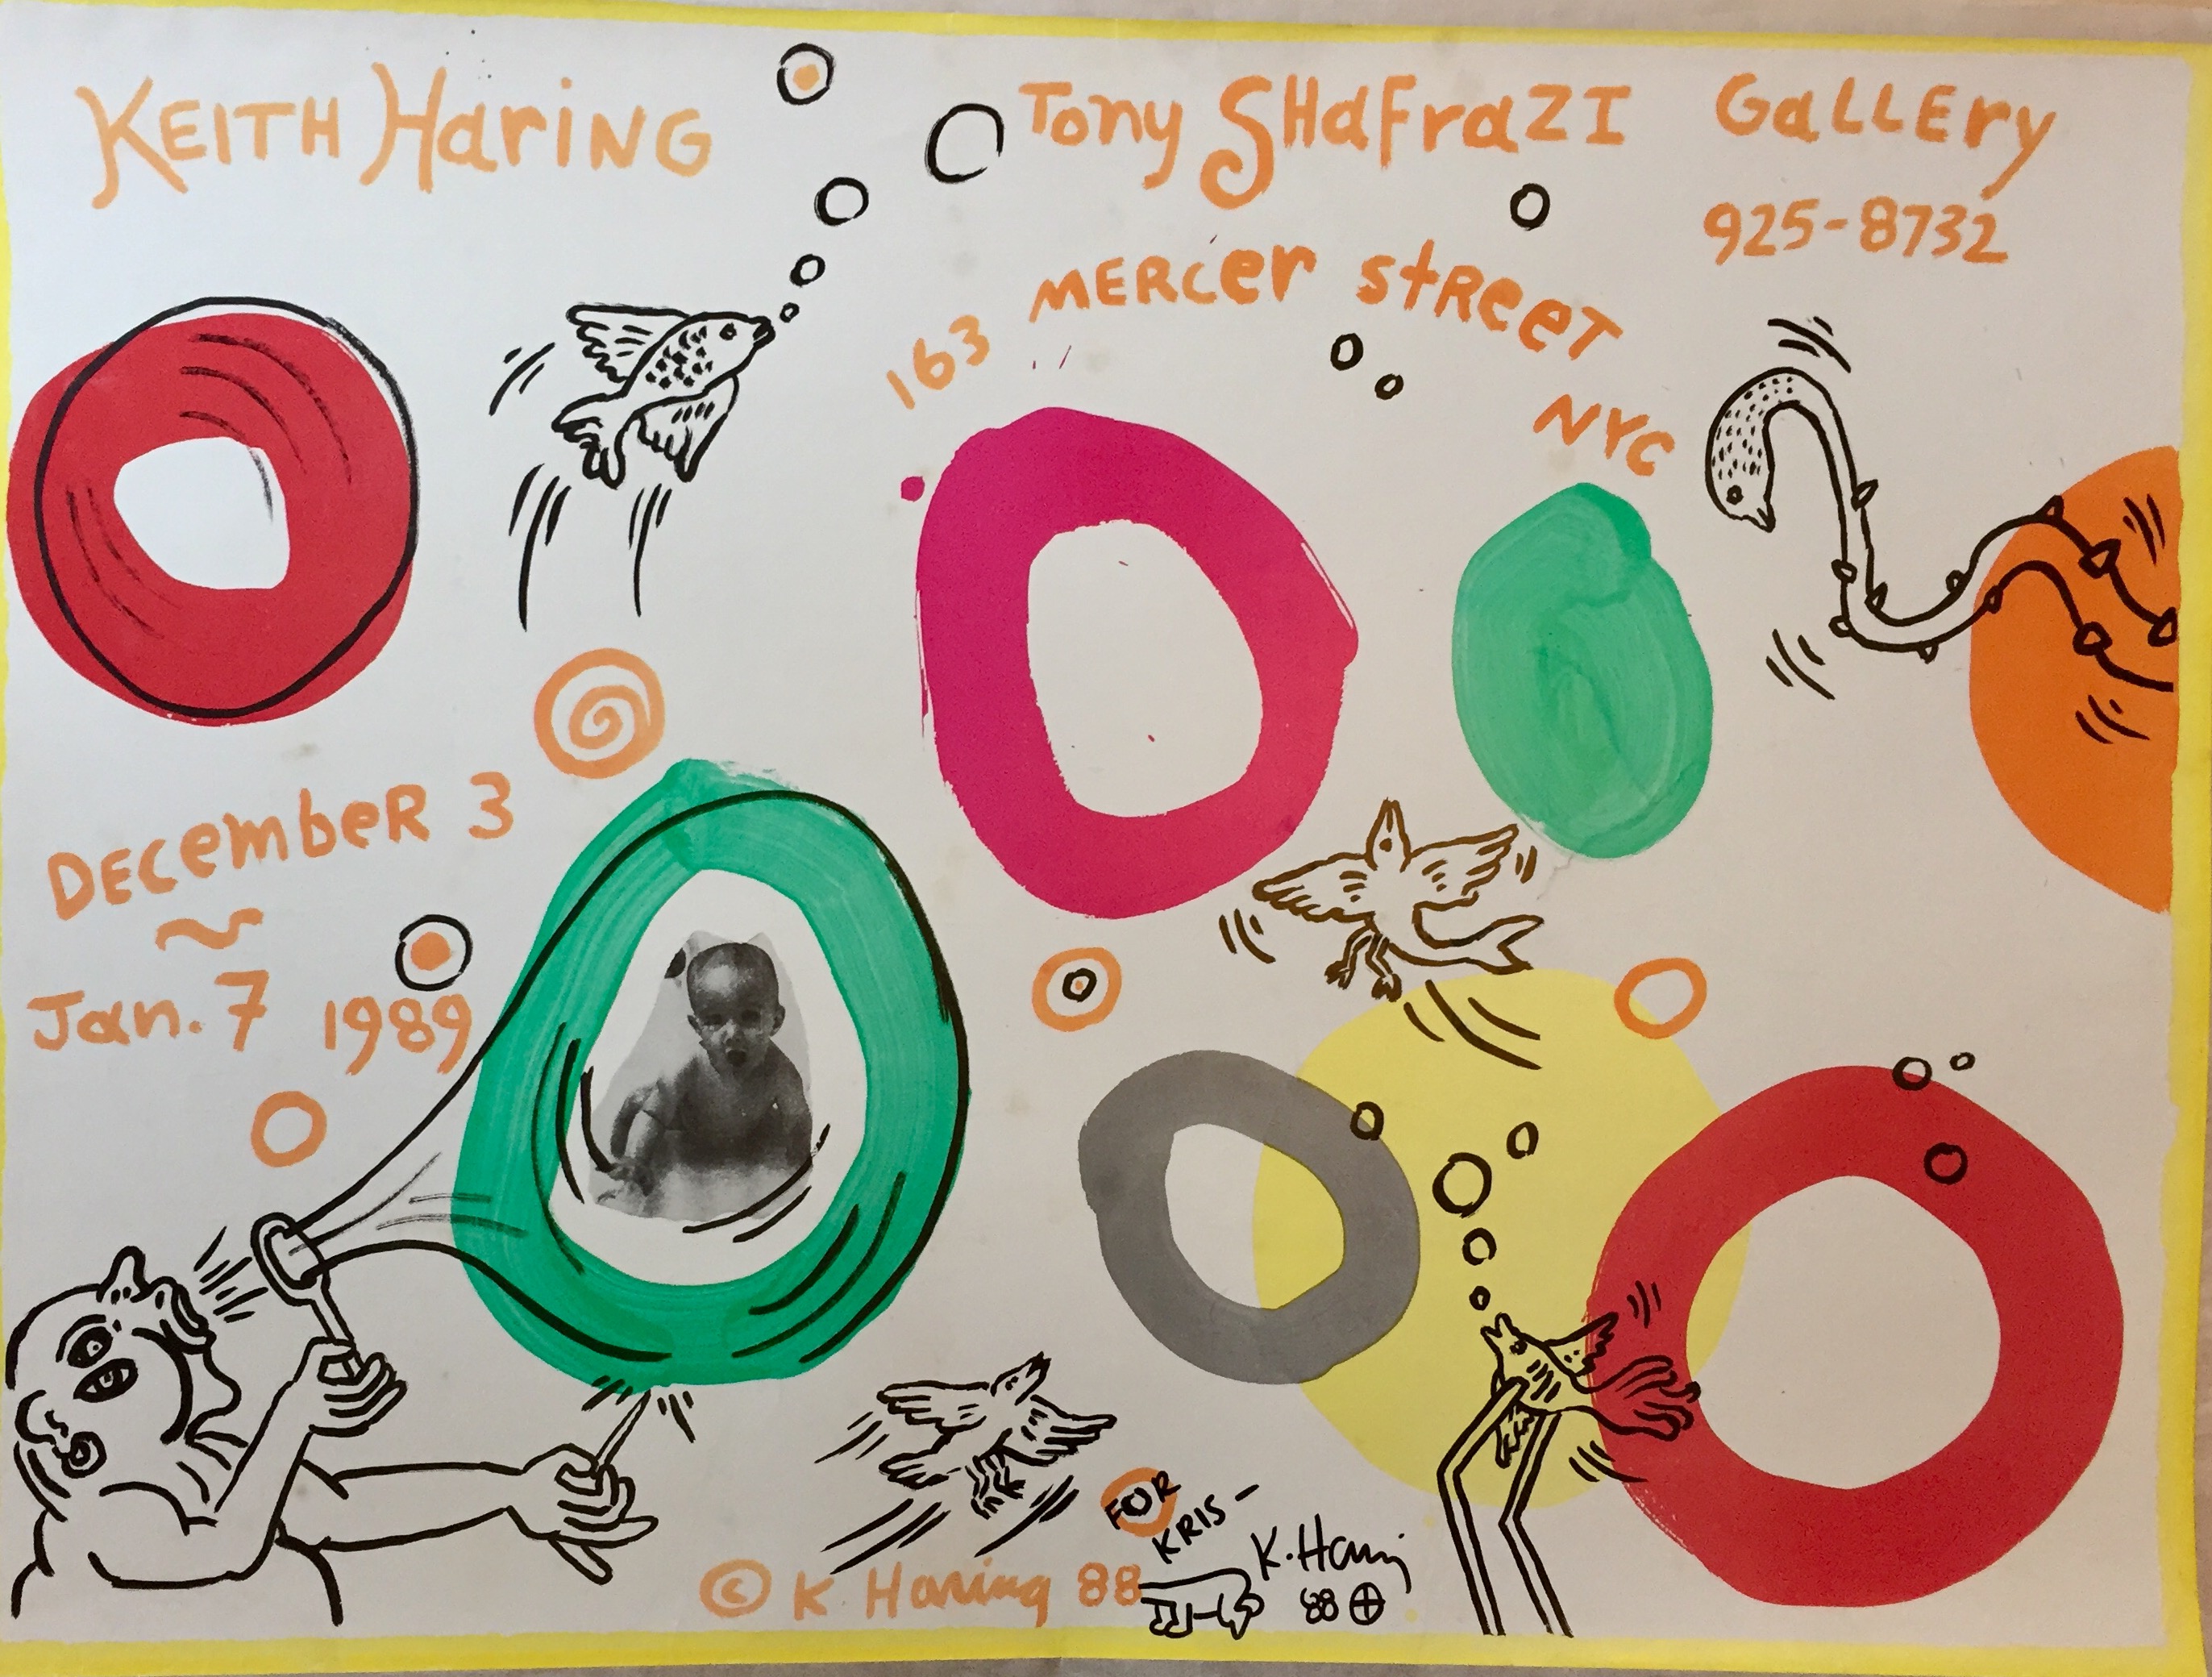 KEITH HarING
Tony SHaFraZI GaLLEry
925-8732
163 MERCer StReeT
NYC
DECembeR 3
~
Jan. 7 1989
FOR
KRIS-
K. Haring
88
© K Haring 88